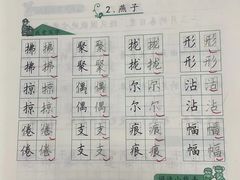 2.燕子
拂拂 聚聚 拢拢 形形
拂拂 聚聚 拢拢 形形
掠掠 偶偶 尔尔 沾沾
掠掠 偶偶 尔尔 沾沾
倦倦 支支 痕痕 幅幅
倦倦 支支 痕痕 幅幅